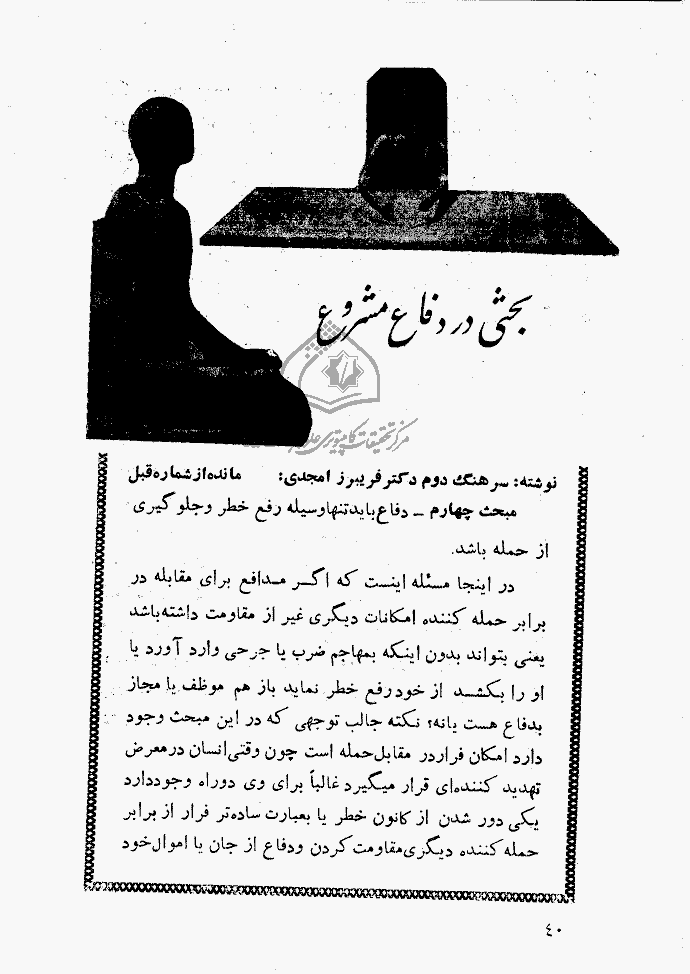 بحثی در دفاع مشروع
مرکز تحقیقات کامپیوتری علوم
نوشته: سرهنگ دوم دکتر فریبرز امجدی: مانده از شماره قبل
مبحث چهارم – دفاع باید تنها وسیله رفع خطر وجلوگیری
از حمله باشد.
در اینجا مسئله اینست که اگر مدافع برای مقابله در
برابر حمله کننده امکانات دیگری غیر از مقاومت داشته باشد
یعنی بتواند بدون اینکه بمهاجم ضرب یا جرحی وارد آورد یا
او را بکشد از خود رفع خطر نماید باز هم موظف یا مجاز
بدفاع هست یانه؟ نکته جالب توجهی که در این مبحث وجود
دارد امکان فراردر مقابل حمله است چون وقتی انسان درمعرض
تهدید کننده‌ای قرار میگیرد غالباً برای وی دوراه وجوددارد
یکی دور شدن از کانون خطر یا بعبارت ساده‌تر فرار از برابر
حمله کننده دیگری مقاومت کردن ودفاع از جان یا اموال خود
۴۰